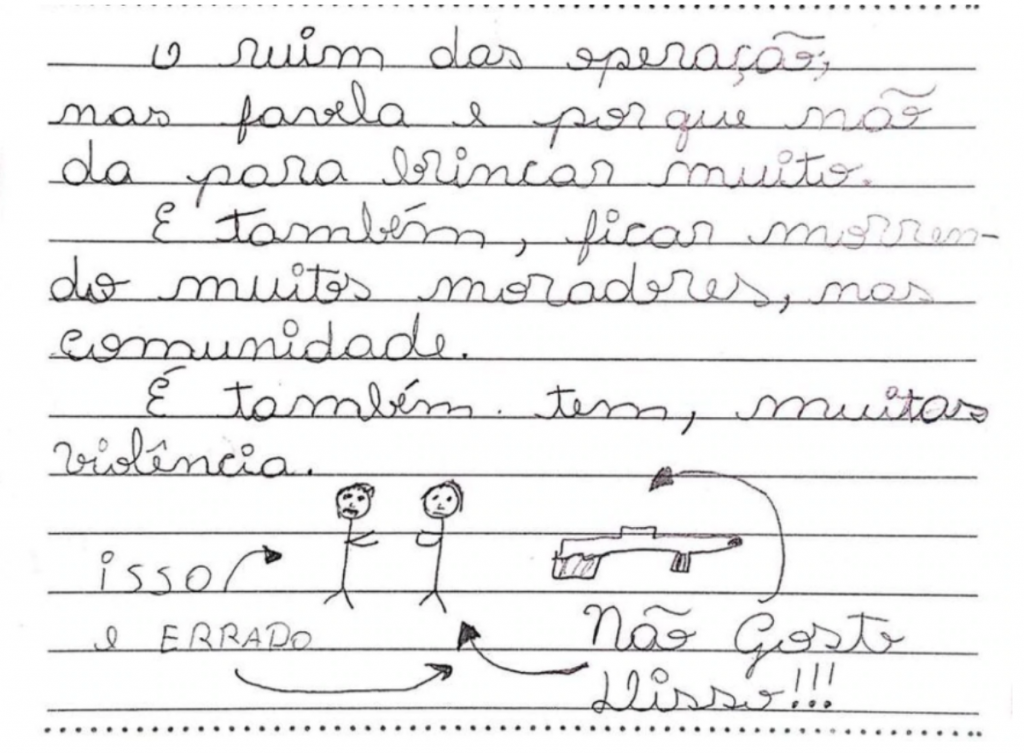 O ruim das operação,
nas favela e por que não
da para brincar muito.
E também, ficar morren-
do muitos moradores, nas
comunidade.
É também tem, muitas
violência.
isso
e ERRADO
Não Gosto
Disso!!!